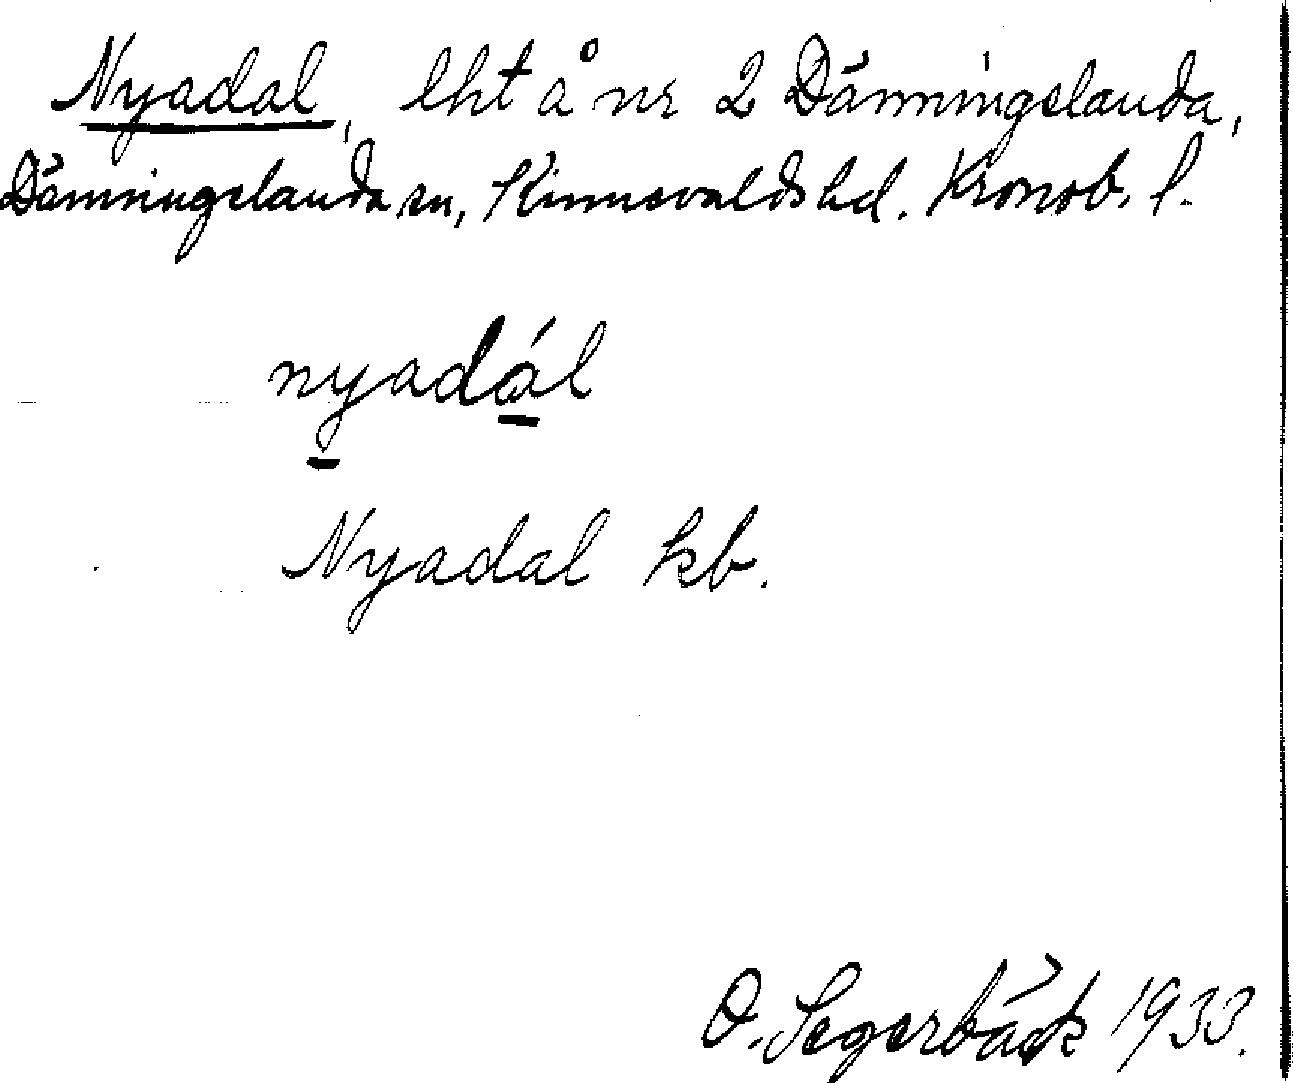 Nyadal, lht å nr 2 Dänningelanda,
Dänningelanda sn, Kinnevalds hd. Kronob. l.
nyadál
Nyadal kb.
O. Segerbäck 1933.